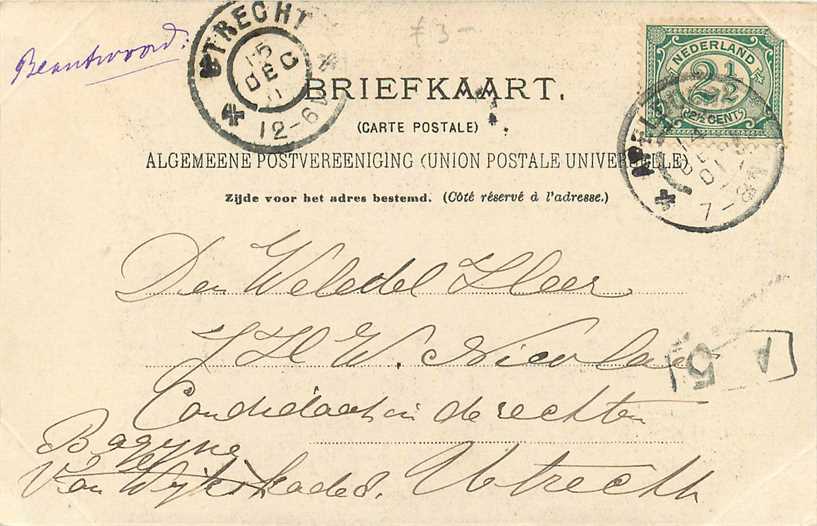 Beantwoord.
£3-
UTRECHT
15
DEC
12-6V
NEDERLAND
2½
(2½ CENT)
BRIEFKAART.
(CARTE POSTALE)
ALGEMEENE POSTVEREENIGING (UNION POSTALE UNIVERSELLE)
Zijde voor het adres bestemd. (Côté réservé à l'adresse.)
Den Weledel Heer
J H W. Nicolas
Candidaat in de rechten
Bagyne
Van Wijkskade Utrecht
A 5